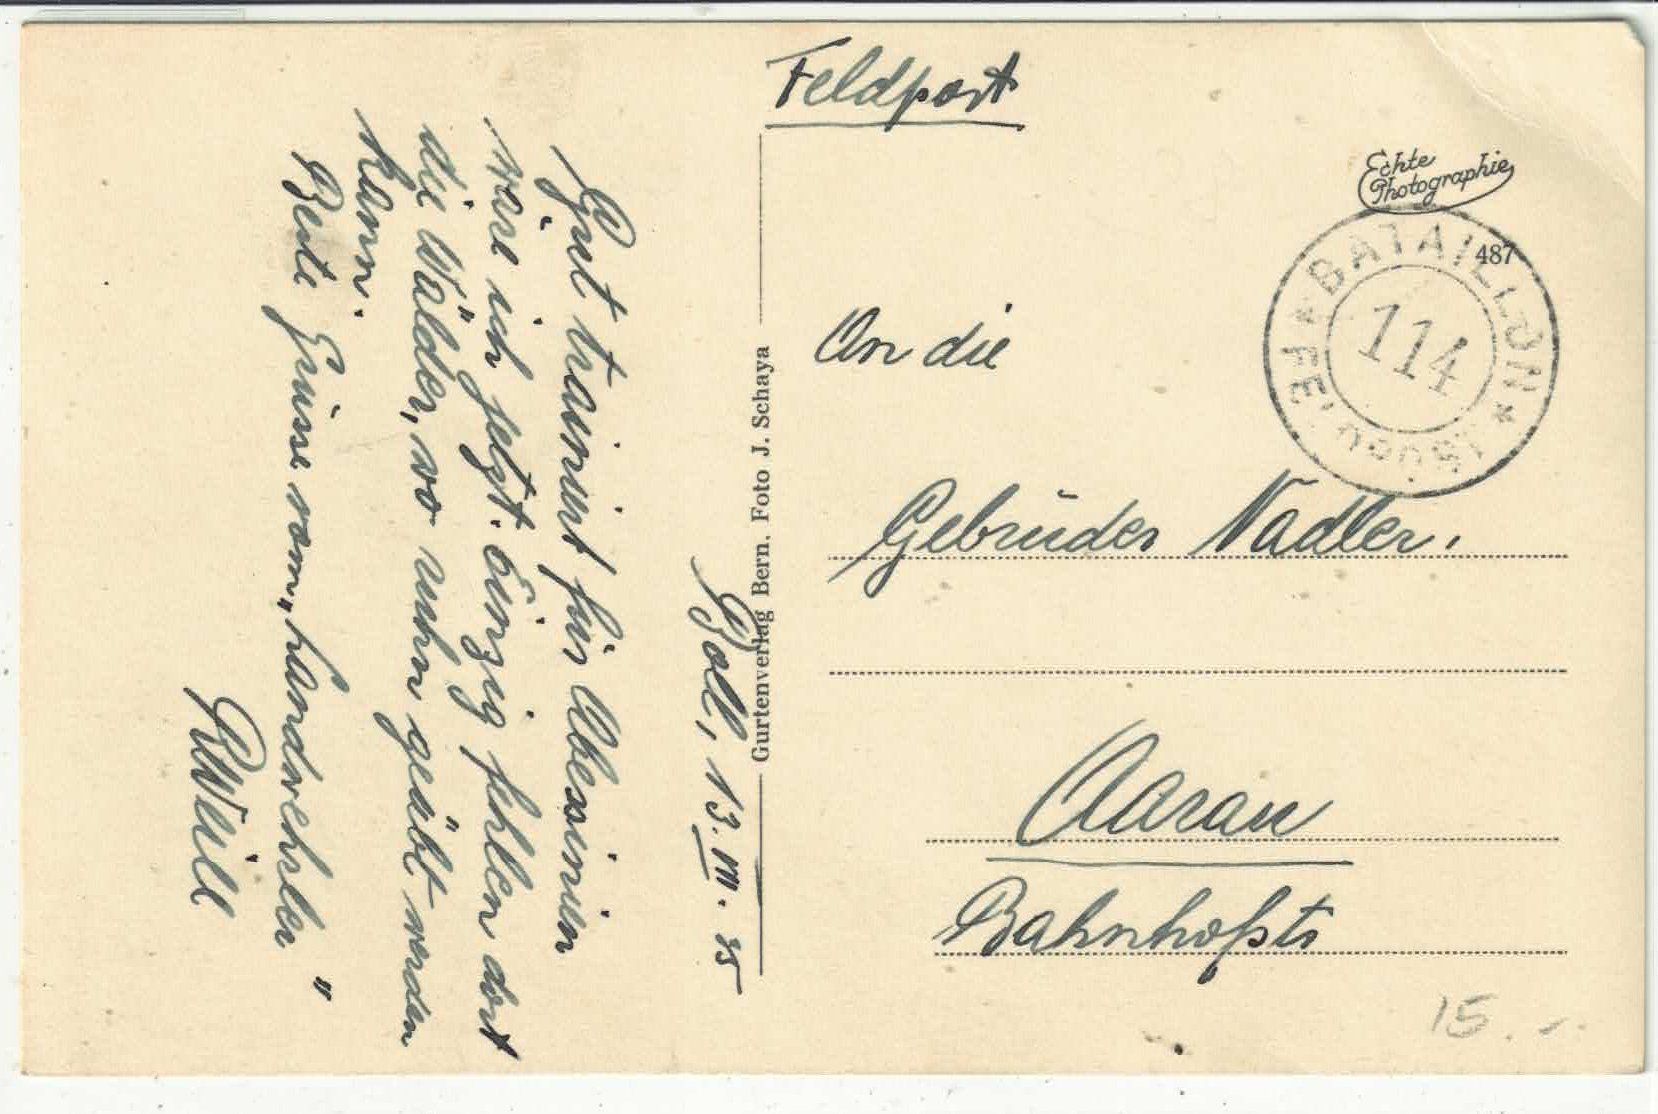 Feldpost
Echte
Photographie
487
* BATAILLON *
114
An die
Gebrüder Nadler.
Aarau
Bahnhofstr
15.-
Gurtenverlag Bern. Foto J. Schaya
Boll, 13. VIII. 35
Gut trainiert für Abessinien
wäre ich jetzt. Einzig fehlen dort
die Wälder, wo ruhn geübt werden
kann.
Beste Grüsse vom "Landwehrler"